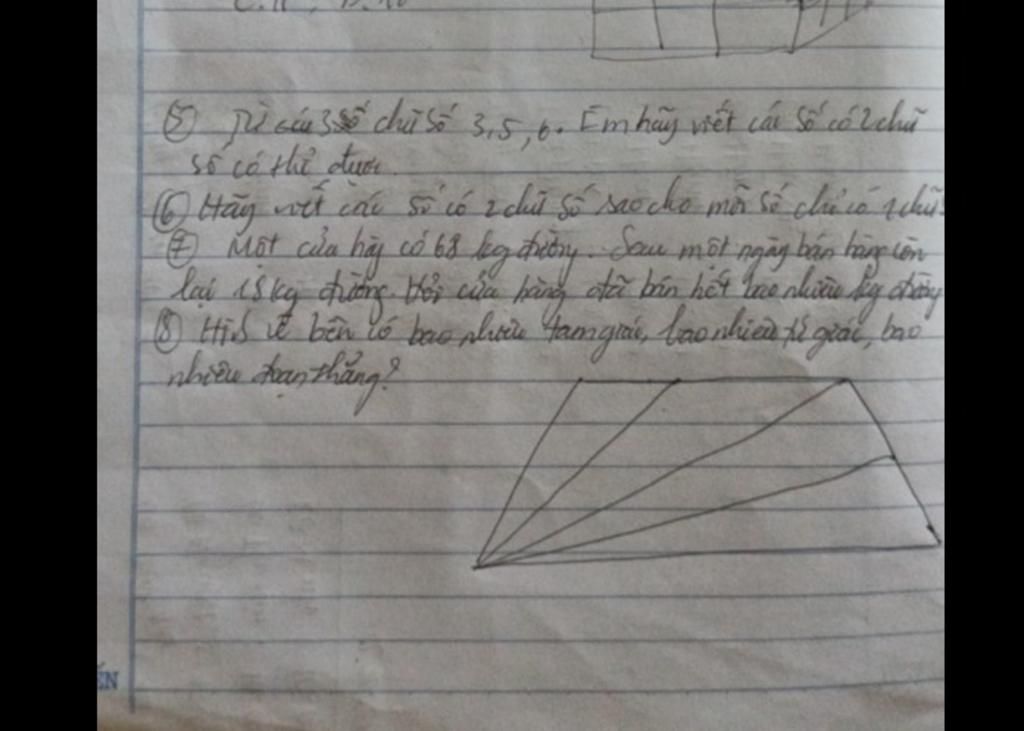 ⑤ Từ các 3 số chữ số 3, 5, 6. Em hãy viết các số có 2 chữ
số có thể được.
⑥ Hãy viết các số có 2 chữ số sao cho mỗi số chỉ có 1 chữ
⑦ Một cửa hàg có 68 kg đường. Sau một ngày bán hàng còn
lại 18 kg đường. Hỏi cửa hàng đã bán hết bao nhiêu kg đường
⑧ Hình vẽ bên có bao nhiêu tam giác, bao nhiêu tứ giác, bao
nhiêu đoạn thẳng?
ẾN